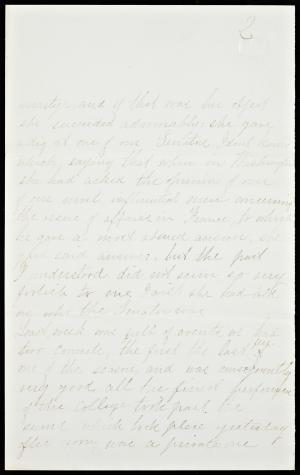 2
and if that was her object
she succeeded admirably. she gave
a dig at one of our Senators, I dont know
which, saying that when in Washington
she had asked the opinion of one
of our most influential men concerning
the issue of affairs in France, to which
he gave a most absurd answer, she
said answer. but the part
I understood did not seem so very
foolish to me. I wish she had told
me who the Senator was
Last week was full of events we had
two concerts, the first the last
one of the season and was consequently
very good all the finest performers
of the College took part the
second which took place yesterday
after noon, was a private one